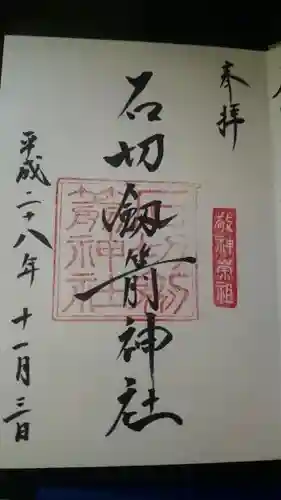 奉拝
敬神崇祖
石切劔箭神社
石切劔箭神社
平成二十八年 十一月三日